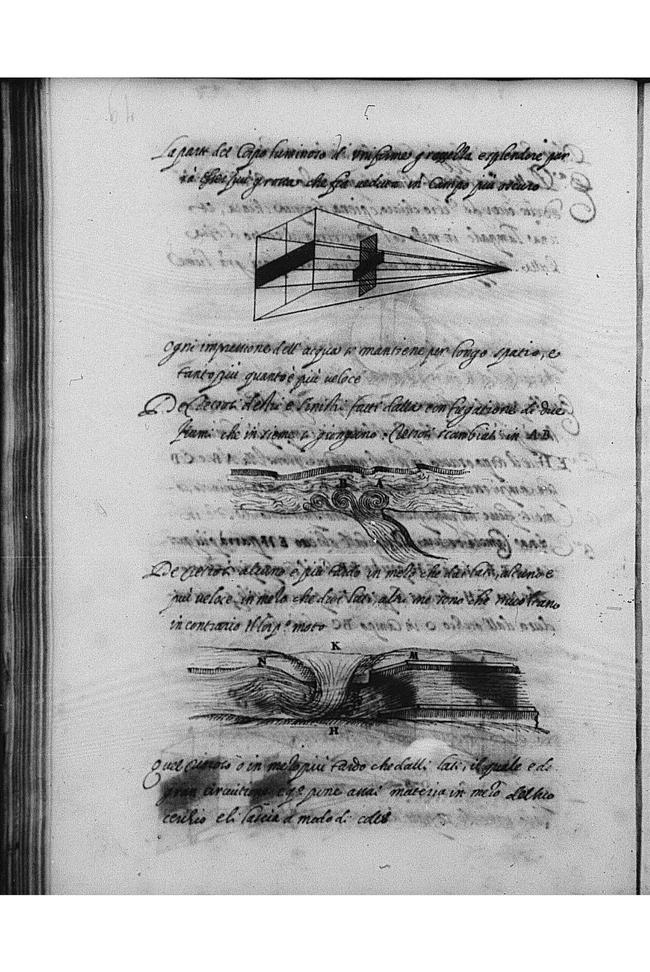 La parte del Corpo luminoso di uniforme grossezza e splendore par
rà esser più grossa che fia veduta in Campo più oscuro
Ogni impressione dell' acqua si mantiene per longo spatio, e
tanto più quanto è più veloce
De Retrosi destri e sinistri fatti dalla con fugatione di due
fiumi che insieme si giungano. Retrosi scambiati in AB
B A
De Retrosi alcuno è più tardo in mezo che dai lati, alcuno è
più veloce in mezo che dai lati, altri ne sono che
in contrario il lor pº moto
K
N M
H
Quel Retroso è in mezo più tardo che dalli lati, il quale è di
gran circuitione e qº pone assai materia in mezo del suo
cerchio e li lascia a modo di